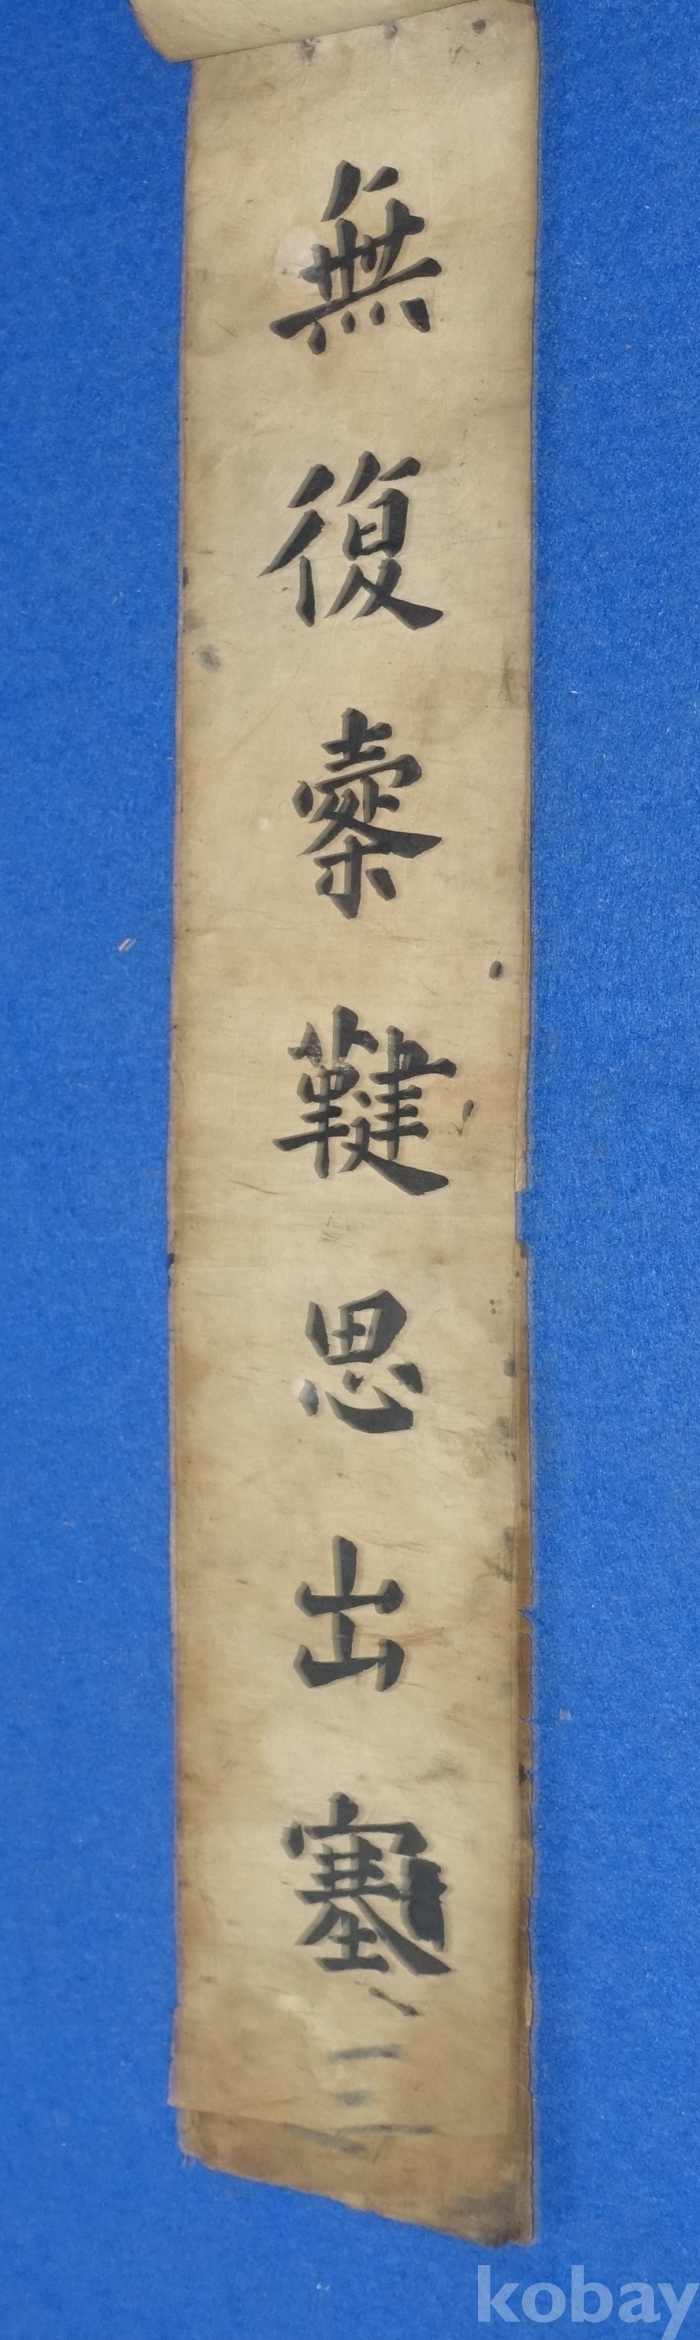 無復櫜鞬思出塞
三
kobay